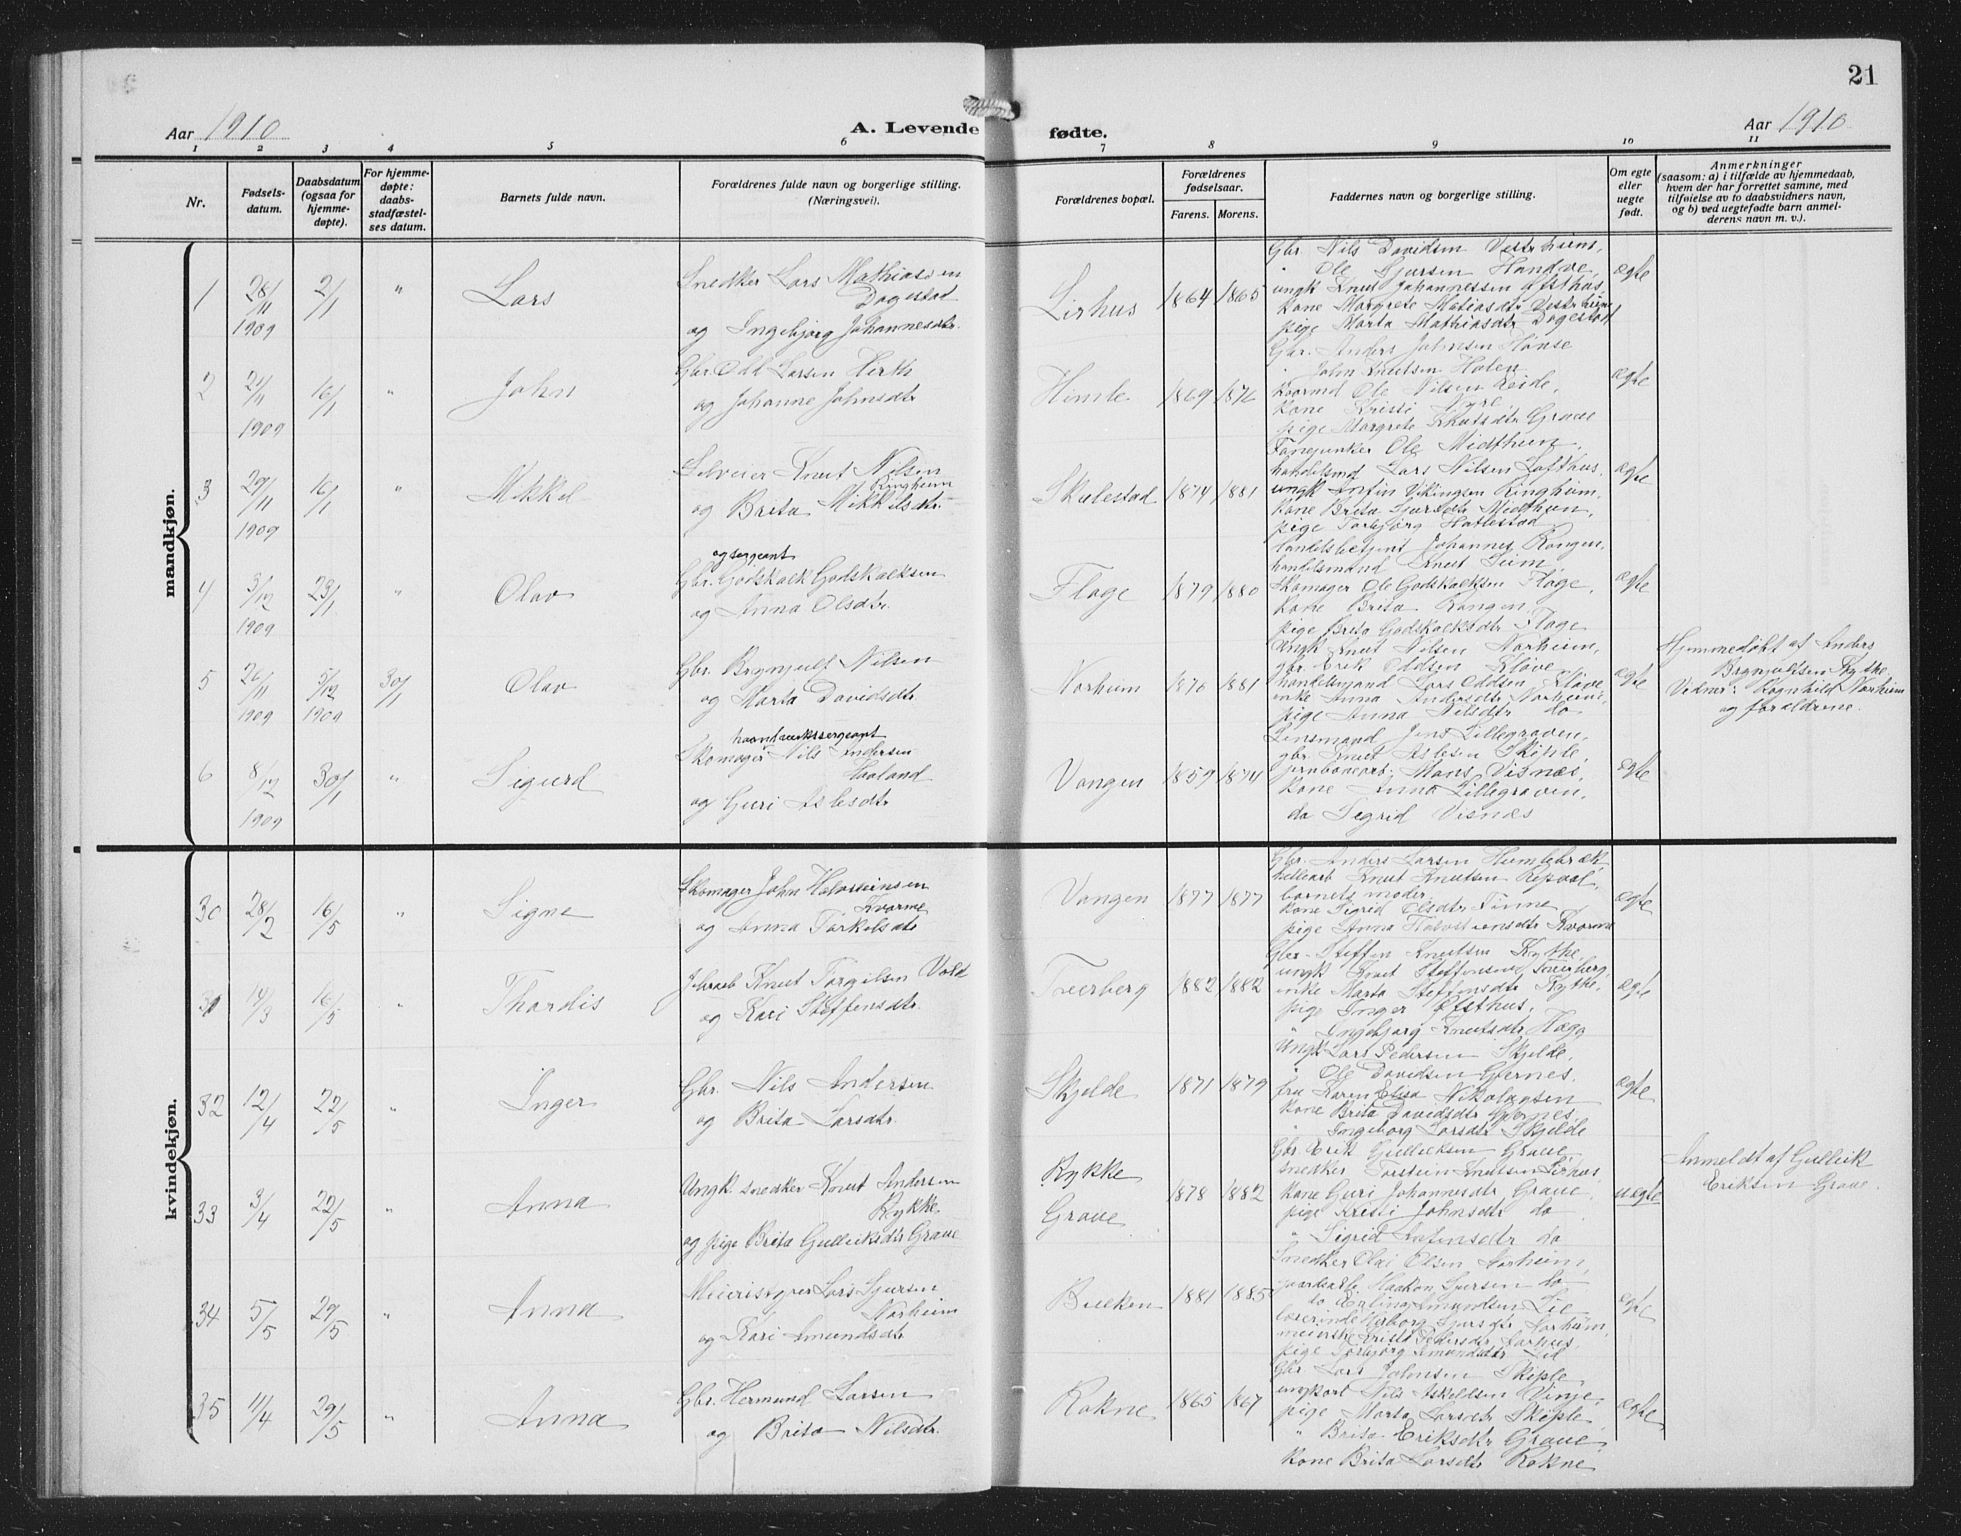 21
Aar 1910
A. Levende fødte.
Aar 1910
1 2 3 4 5 6 7 8 9 10 11
Nr.
Fødsels-
datum.
Daabsdatum
(ogsaa for
hjemme-
døpte).
For hjemme-
døpte:
daabs-
stadfæstel-
ses datum.
Barnets fulde navn.
Forældrenes fulde navn og borgerlige stilling.
(Næringsvei).
Forældrenes bopæl.
Forældrenes
fødselsaar.
Farens. Morens.
Faddernes navn og borgerlige stilling.
Om egte
eller
uegte
født.
Anmerkninger
(saasom: a) i tilfælde av hjemmedaab,
hvem der har forrettet samme, med
tilføielse av to daabsvidners navn,
og b) ved uegtefødte barn anmel-
derens navn m. v.).
mandkjøn.
1 28/11 1909 2/1 " Lars
Snedker Lars Mathiasen
Dagestad
og Ingebjørg Johannesdtr.
Lirhus 1864 1865
Gbr. Nils Davidsen
" Ole Sjursen Handve,
ungk Knut Johannessen
kone Margrete
pige Marta Mathiasdtr Dagestad
ægte
2 21/11 1909 16/1 " John
Gbr. Odd Larsen
og Johanne Johnsdtr
Himle 1869 1876
Gbr. Anders Johnsen
" John Knutsen
Ole Nilsen
kone Kristi
pige Margrete Knutsdtr Graue
ægte
3 29/11 1909 16/1 " Mikkel
Knut Nilsen
Ringheim
og Brita Mikkelsdtr.
Skulestad 1874 1881
Fanejunker Ole Midthun,
handelsmd Lars Nilsen Lofthus,
ungk Vikingsen Ringheim,
kone Brita Sjursdtr Midthun,
pige Torbjørg Hatlestad
ægte
4 3/12 1909 23/1 " Olav
og sergeant
Gbr. Godskalk Godskalksen
og Anna Olsdtr.
Flage 1879 1880
handelsbetjent Johannes Rongen,
handelsmand Knut
Skomager Ole Godskalksen Flage,
kone Brita Rongen,
pige Brita Godskalksdtr Flage
ægte
5 26/11 1909 5/12 1909 30/1 Olav
Gbr. Brynjulf Nilsen
og Marta Davidsdtr.
Norheim 1876 1881
Ungk Knut Nilsen Norheim,
gbr. Erik Oddsen Kløve,
handelsmand Lars Oddsen Kløve
enke Anna Andersdtr Norheim,
pige Anna Nilsdtr do
ægte
Hjemmedøbt af Anders
Brynjulfsen Kythe
Vidner: Ragnhild Norheim
og forældrene.
6 8/12 1909 30/1 " Sigurd
haandverkssergeant
Skomager Nils Andersen
Haaland
og Guri Aslesdtr
Vangen 1859 1874
Lensmand Jens Lillegraven,
gbr. Knut Aslesen
jernbanearb. Mons Visnæs,
kone Anna Lillegraven,
do Sigrid Visnæs
ægte
kvindekjøn.
30 28/2 16/5 " Signe
Skomager John Halvsteinsen
Kvarme
og Anna Torkelsdtr
Vangen 1877 1877
Gbr. Anders Larsen Humlebræk
Knut Knutsen
barnets moder,
kone Sigrid Olsdtr Finne,
pige Anna Halvsteinsdtr Kvarme
ægte
31 14/3 16/5 " Thordis
Knut Torgilsen Vold
og Kari Steffensdtr.
Tverberg 1882 1882
Gbr. Steffen Knutsen Kythe,
ungk. Knut Steffensen Tverberg,
enke Marta Steffensdtr Kythe,
pige Inger Østhus,
" Ingebjørg Knutsdtr Haga
ægte
32 12/4 22/5 " Inger
Gbr. Nils Andersen
og Brita Larsdtr.
Skjelde 1871 1879
Ungk Lars Pedersen Skjelde,
" Ole Davidsen Gjernes,
fru Karen Elisa Nikolaysen
kone Brita Davidsdtr Gjernes,
" Ingeborg Larsdtr Skjelde
ægte
33 3/4 22/5 " Anna
Ungk. snedker Knut Andersen
Rykke
og pige Brita Gulleiksdtr Graue
Rykke
Graue
1878 1882
Gbr. Erik Gulleiksen Graue,
snedker Torstein Knutsen
kone Guri Johannesdtr Graue,
pige Kristi Johnsdtr do
" Sigrid do
uegte
Anmeldt af Gulleik
Eriksen Graue.
34 5/5 29/5 " Anna
Meieristyrer Lars Sjursen
Norheim
og Kari Amundsdtr
Bulken 1881 1885
Snedker Olai Olsen Norheim,
gaardsarb. Haakon Sjursen do
do Erling Amundsen Lie
lærerinde Sjursdtr Norheim,
Pedersdtr
pige Torbjørg Amundsdtr
ægte
35 11/4 29/5 " Anna
Gbr. Hermund Larsen
og Brita Nilsdtr.
Rokne 1865 1867
Gbr. Lars Johnsen
Nils Askeldsen Vinje,
pige Marta Larsdtr
" Brita Eriksdtr Graue,
kone Brita Larsdtr Rokne
ægte